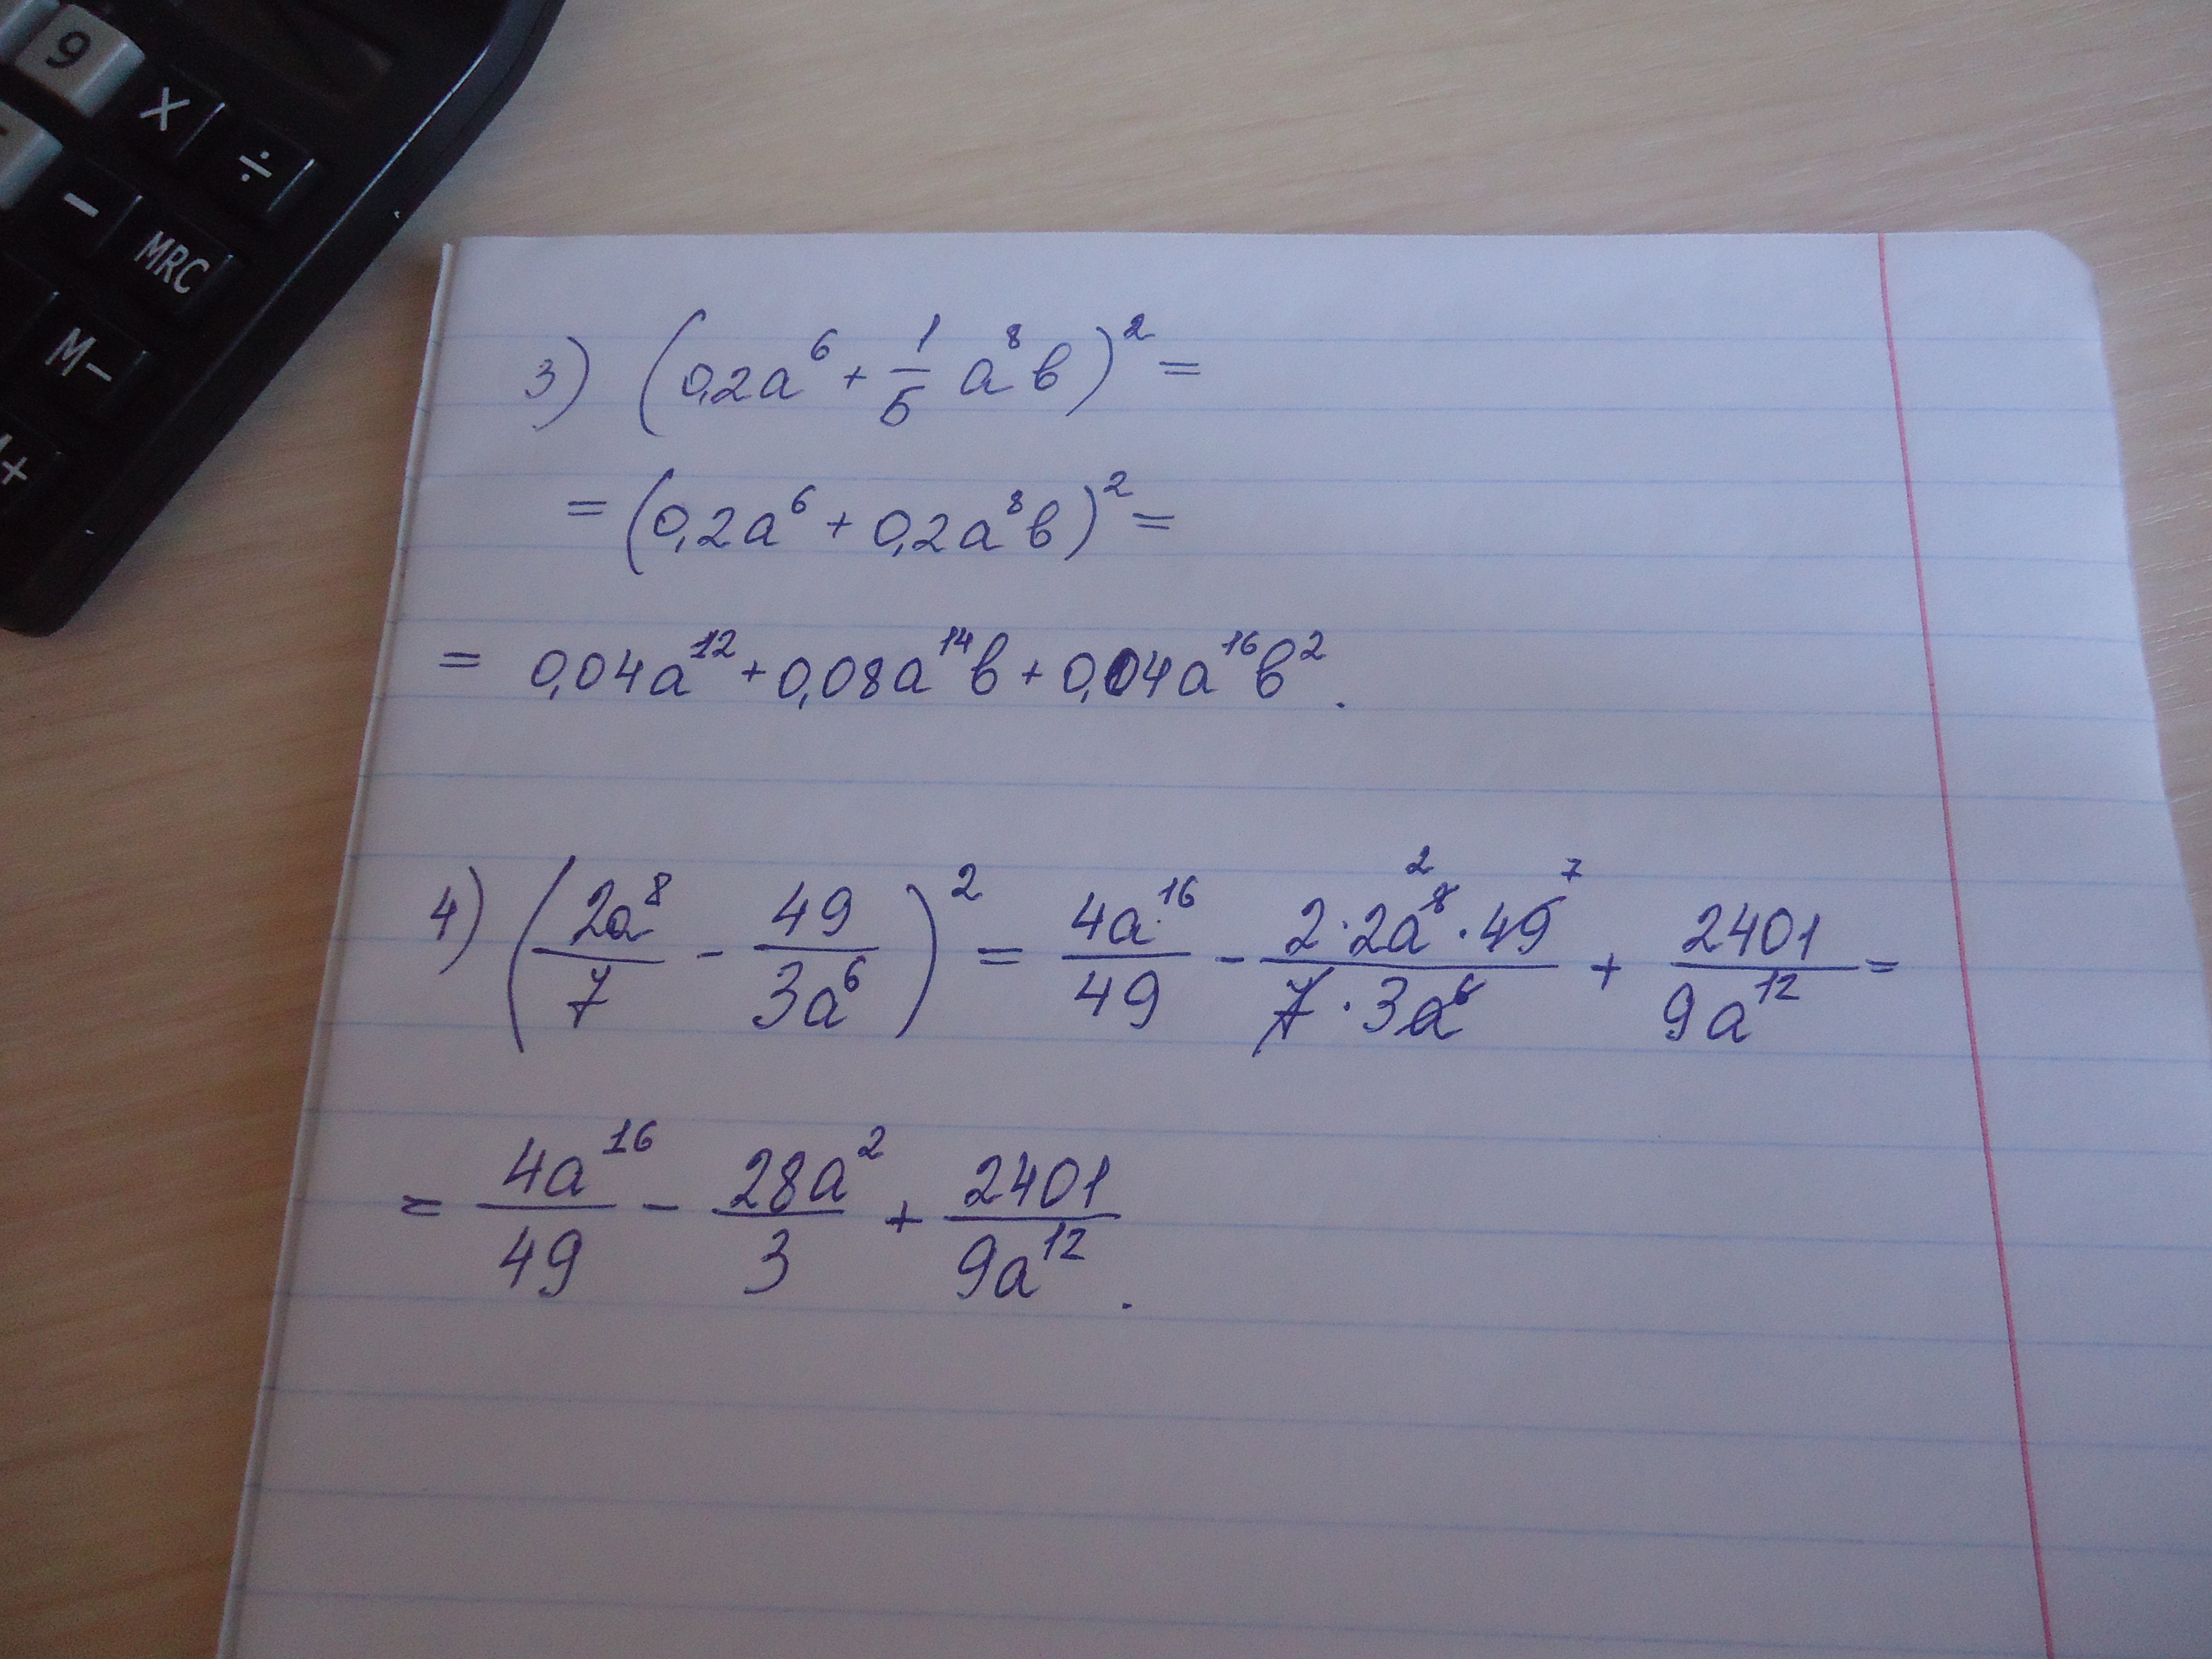 9
X ÷
- MRC
M-
+
3) (0,2a⁶ + 1/5 a⁸в)² =
= (0,2a⁶ + 0,2a⁸в)² =
= 0,04a¹² + 0,08a¹⁴в + 0,04a¹⁶в².
4) (2a⁸/7 - 49/3a⁶)² = 4a¹⁶/49 - 2·2a⁸ ²·49 ⁷/7·3a⁶ + 2401/9a¹² =
= 4a¹⁶/49 - 28a²/3 + 2401/9a¹².